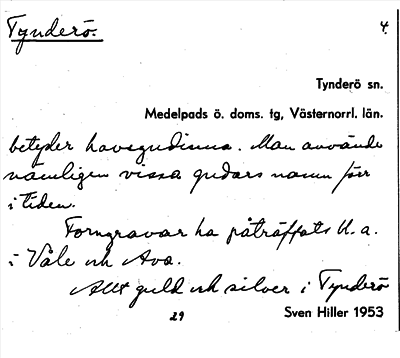 Tynderö. 4.
Tynderö sn.
Medelpads ö. doms. tg, Västernorrl. län.
betyder havsgudinna. Man använde
nämligen vissa gudars namn förr
i tiden.
Forngravar ha påträffats bl. a.
i Våle och Ava.
Allt guld och silver i Tynderö
29 Sven Hiller 1953